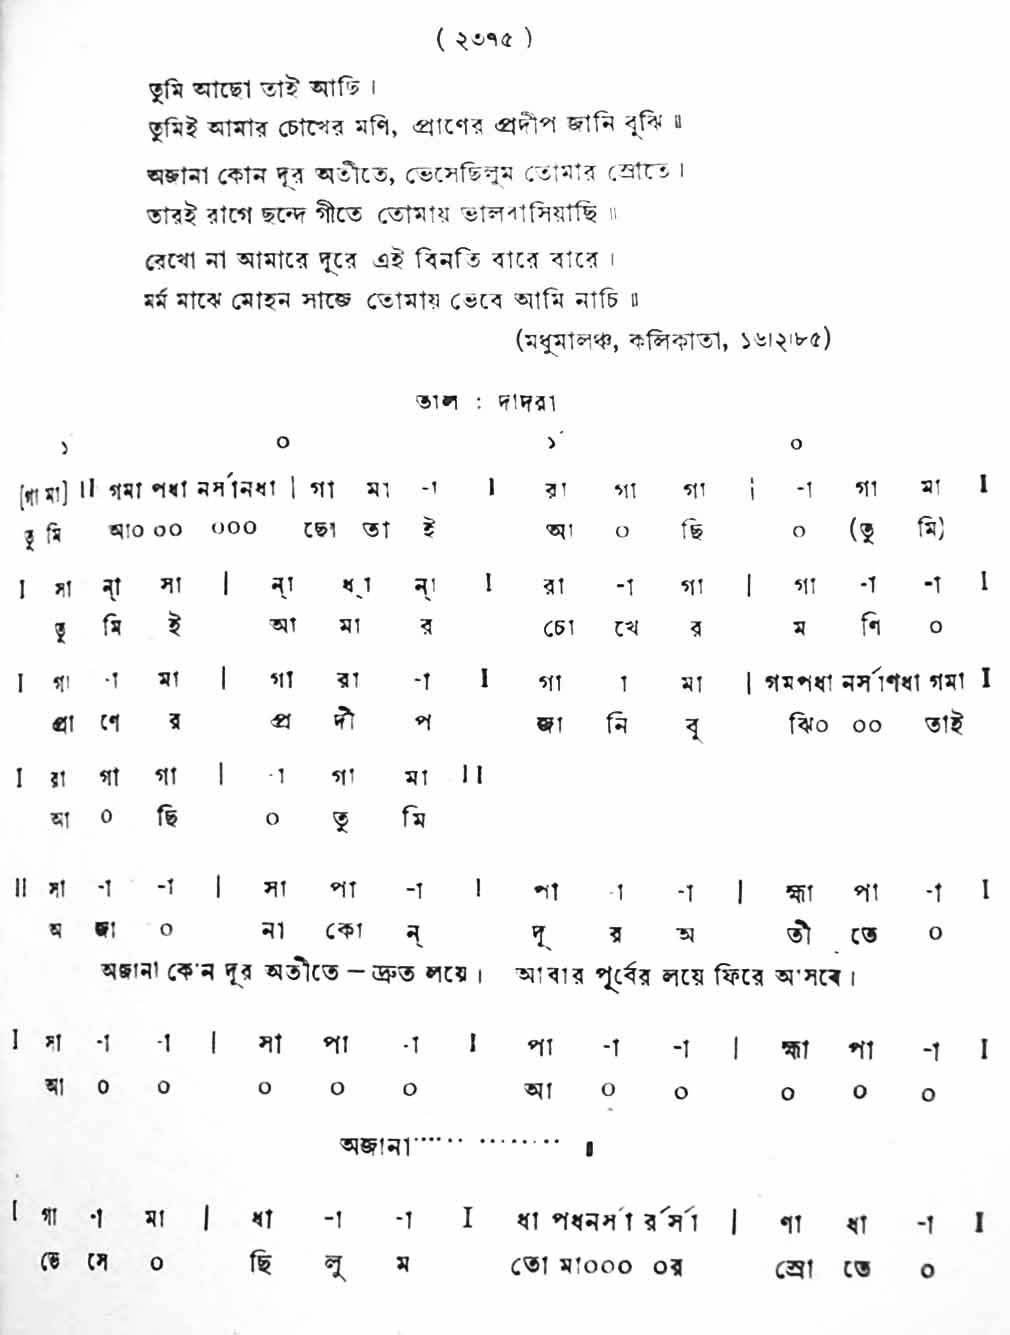 ( ২৩৭৫ )
তুমি আছো তাই আছি ।
তুমিই আমার চোখের মণি, প্রাণের প্রদীপ জানি বুঝি ॥
অজানা কোন দূর অতীতে, ভেসেছিলুম তোমার স্রোতে ।
তারই রাগে ছন্দে গীতে তোমায় ভালবাসিয়াছি ॥
রেখো না আমারে দূরে এই বিনতি বারে বারে ।
মর্ম মাঝে মোহন সাজে তোমায় ভেবে আমি নাচি ॥
(মধুমালঞ্চ, কলিকাতা, ১৬।২।৮৫)
তাল : দাদরা
১ ০ ১´ ০
[গা মা] II গমা পধা নর্সানধা | গা মা -া I রা গা গা | -া গা মা I
তু মি আ০ ০০ ০০০ ছো তা ই আ ০ ছি ০ (তু মি)
I সা ন্া সা | ন্া ধ্া ন্া I রা -া গা | গা -া -া I
তু মি ই আ মা র চো খে র ম ণি ০
I গা -া মা | গা রা -া I গা া মা | গমপধা নর্সাণধা গমা I
প্রা ণে র প্র দী প জা নি বু ঝি০ ০০ তাই
I রা গা গা | -া গা মা II
আ ০ ছি ০ তু মি
II সা -া -া | সা পা -া I পা -া -া | হ্মা পা -া I
অ জা ০ না কো ন্ দূ র অ তী তে ০
অজানা কোন দূর অতীতে – দ্রুত লয়ে । আবার পূর্বের লয়ে ফিরে আসবে ।
I সা -া -া | সা পা -া I পা -া -া | হ্মা পা -া I
আ ০ ০ ০ ০ ০ আ ০ ০ ০ ০ ০
অজানা······ ········· ॥
I গা -া মা | ধা -া -া I ধা পধনর্সা র্র্সা | ণা ধা -া I
ভে সে ০ ছি লু ম তো মা০০০ ০র স্রো তে ০